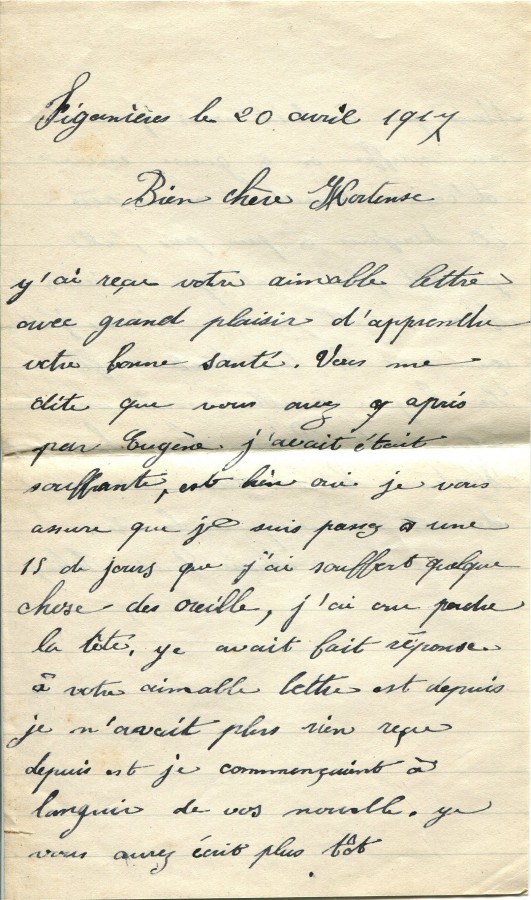 Figanières le 20 avril 1917
Bien chère Hortense
y'ai reçu votre aimable lettre
avec grand plaisir d'apprendre
votre bonne santé. Vous me
dite que vous avez y apris
par Eugène j'avait était
souffrante, est bien oui je vous
assure que je suis passez a une
15 de jours que j'ai souffert quelque
chose des oreille, j'ai cru perdre
la tête, ye avait fait réponse
à votre aimable lettre est depuis
je n'avait plus rien reçu
depuis est je commençaint à
languir de vos nouvelle. ye
vous aurez écrit plus tôt